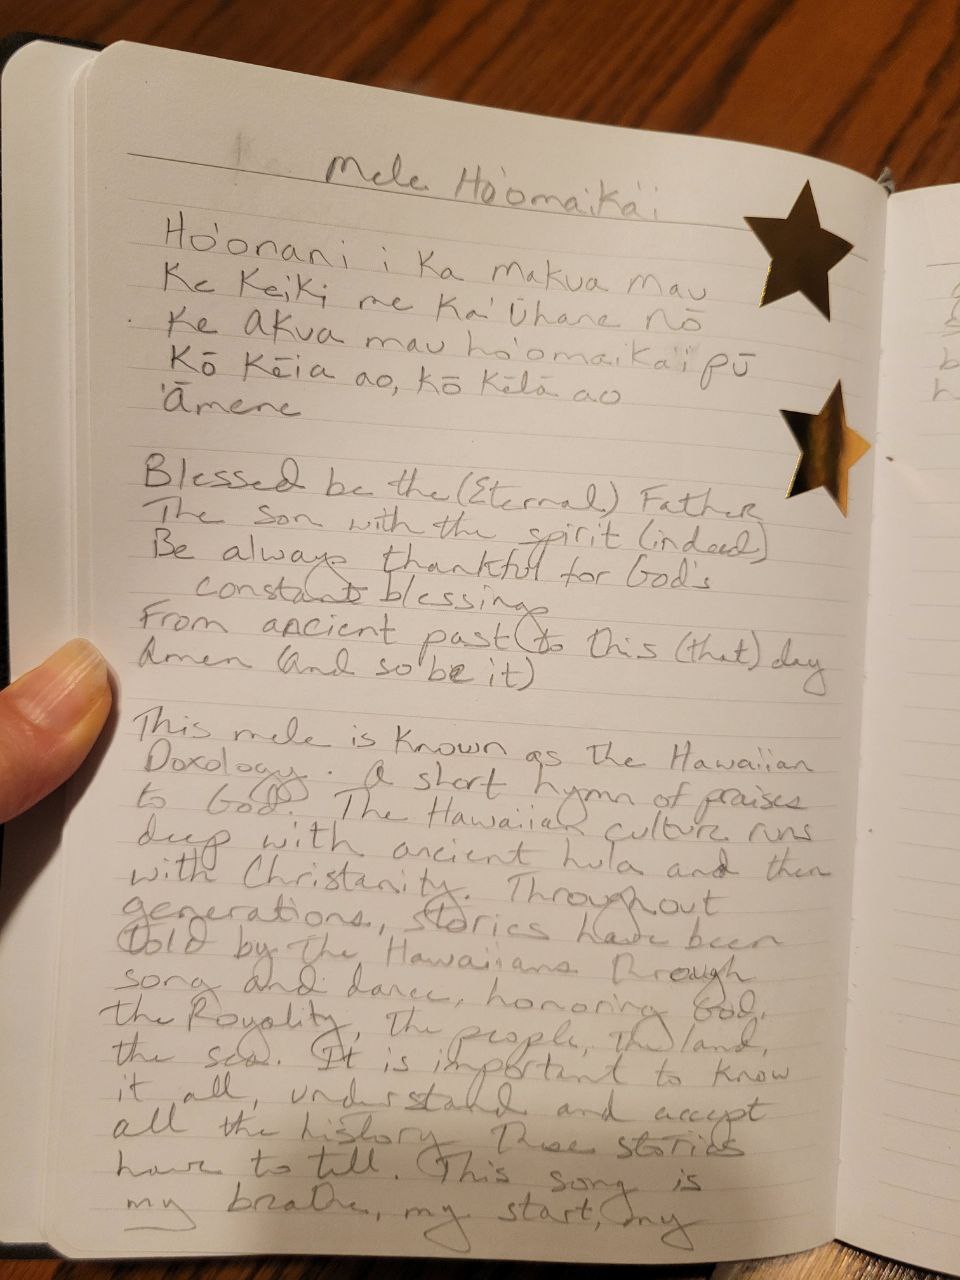 Mele Ho'omaika'i
Ho'onani i Ka Makua mau
Ke Keiki me Ka 'Ūhane nō
Ke Akua mau ho'omaika'i pū
Kō Kēia ao, Kō Kēlā ao
'Āmene
Blessed be the (Eternal) Father
The Son with the spirit (indeed)
Be always thankful for God's
constant blessings
From ancient past to this (that) day
Amen (and so be it)
This mele is Known as the Hawaiian
Doxology. A short hymn of praises
to God. The Hawaiian culture runs
deep with ancient hula and then
with Christanity. Throughout
generations, stories have been
told by the Hawaiians through
song and dance, honoring God,
the Royality, the people, the land,
the sea. It is important to know
it all, understand and accept
all the history these stories
have to tell. This song is
my breathe, my start, my
b
h